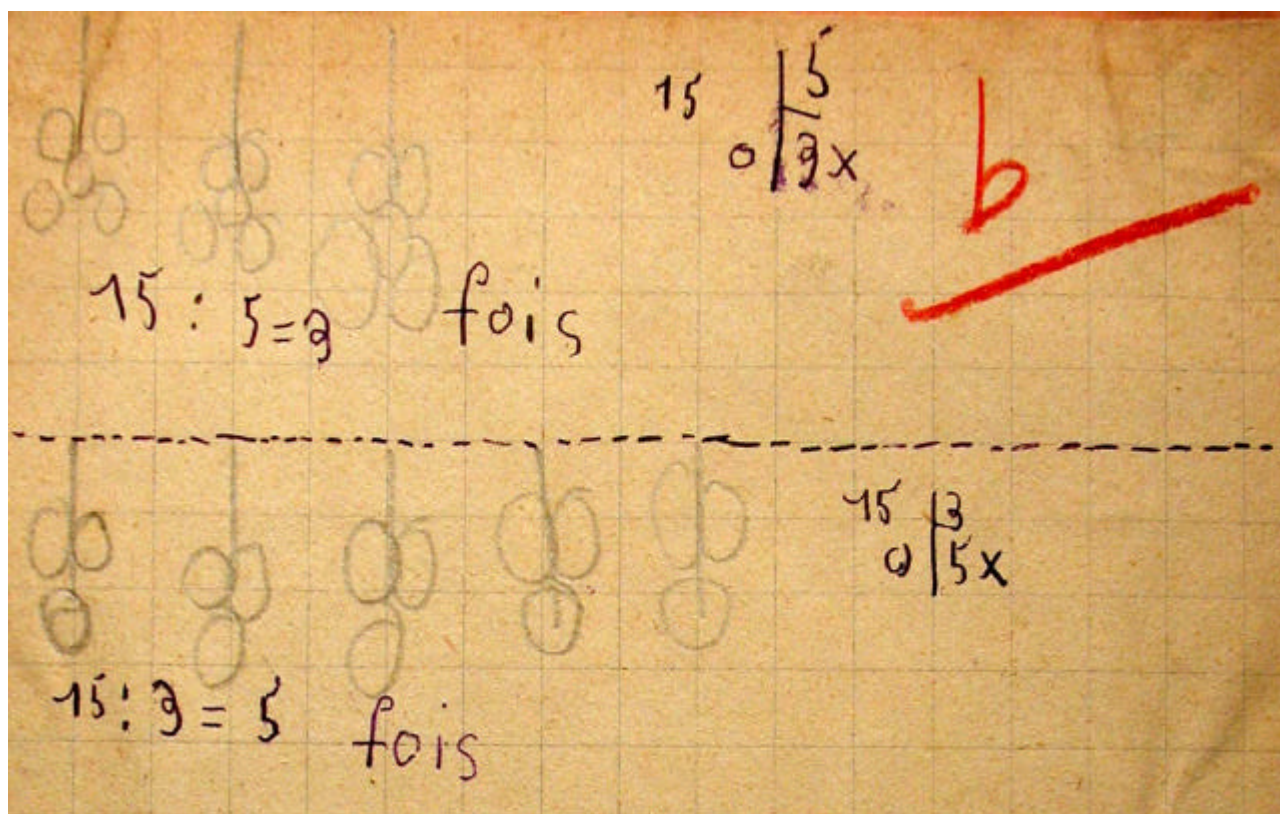 15 5
0 3x
b
15 : 5 = 3 fois
15 3
0 5x
15 : 3 = 5 fois